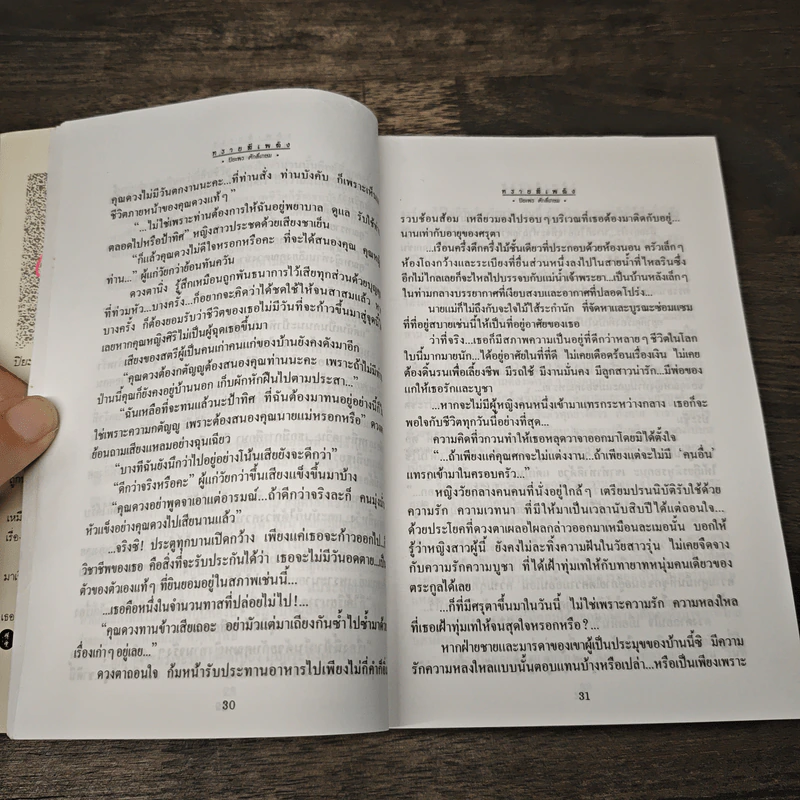 ทรายสีเพลิง
• ปิยะพร ศักดิ์เกษม •
คุณดวงไม่มีวันตกงานนะคะ...ที่ท่านสั่ง ท่านบังคับ ก็เพราะเห็น
ชีวิตภายหน้าของคุณดวงแท้ๆ”
“...ไม่ใช่เพราะท่านต้องการให้ฉันอยู่พยาบาล ดูแล รับใช้
ตลอดไปหรือป้าทิศ” หญิงสาวประชดด้วยเสียงชาเย็น
“ก็แล้วคุณดวงไม่ดีใจหรอกหรือคะ ที่จะได้สนองคุณ
ท่าน...” ผู้แก่วัยกว่าย้อนทันควัน
ดวงตานิ่ง รู้สึกเหมือนถูกพันธนาการไว้เสียทุกส่วนด้วย
ที่ท่วมหัว...บางครั้ง...ก็อยากจะคิดว่าได้ชดใช้ให้จนสาสมแล้ว
บางครั้ง ก็ต้องยอมรับว่าชีวิตของเธอไม่มีวันที่จะก้าวขึ้นมาสู่
เลยหากคุณหญิงศิริไม่เป็นผู้ฉุดเธอขึ้นมา
เสียงของสตรีผู้เป็นคนเก่าคนแก่ของบ้านยังคงดังมาอีก
“คุณดวงต้องกตัญญูต้องสนองคุณท่านนะคะ เพราะถ้าไม่มี
ป่านนี้คุณก็ยังคงอยู่บ้านนอก เก็บผักหักฟืนไปตามประสา...”
“ฉันเหลือที่จะทนแล้วนะป้าทิศ ที่ฉันต้องมาทนอยู่อย่างนี้
ใช่เพราะความกตัญญู เพราะต้องสนองคุณนายแม่หรอกหรือ”
ย้อนถามเสียงแหลมอย่างฉุนเฉียว
“บางทีฉันยังนึกว่าไปอยู่อย่างโน้นเสียยังจะดีกว่า”
“ดีกว่าจริงหรือคะ” ผู้แก่วัยกว่าขึ้นเสียงแข็งขึ้นมาบ้าง
“คุณดวงอย่าพูดจาเอาแต่อารมณ์...ถ้าดีกว่าจริงละก็
หัวแข็งอย่างคุณดวงไปเสียนานแล้ว”
...จริงซิ! ประตูทุกบานเปิดกว้าง เพียงแค่เธอจะก้าวออกไป
วิชาชีพของเธอ คือสิ่งที่จะรับประกันได้ว่า เธอจะไม่มีวันอดตาย...
ตัวของตัวเองแท้ๆ ที่ยินยอมอยู่ในสภาพเช่นนี้...
...เธอคือหนึ่งในจำนวนทาสที่ปล่อยไม่ไป!...
“คุณดวงทานข้าวเสียเถอะ อย่ามัวแต่มาเถียงกันซ้ำไปซ้ำมา
เรื่องเก่าๆ อยู่เลย...”
ดวงตาถอนใจ ก้มหน้ารับประทานอาหารไปเพียงไม่กี่คำก็
30
ทรายสีเพลิง
• ปิยะพร ศักดิ์เกษม •
รวบช้อนส้อม เหลียวมองไปรอบๆ บริเวณที่เธอต้องมาติดกับอยู่...
นานเท่ากับอายุของศรุตา
...เรือนครึ่งตึกครึ่งไม้ชั้นเดียวที่ประกอบด้วยห้องนอน ครัวเล็กๆ
ห้องโถงกว้างและระเบียงที่ยื่นส่วนหนึ่งลงไปในสายน้ำที่ไหลรินซึ่ง
อีกไม่ไกลเลยก็จะไหลไปบรรจบกับแม่น้ำเจ้าพระยา...เป็นบ้านหลังเล็กๆ
ในท่ามกลางบรรยากาศที่เงียบสงบและอากาศที่ปลอดโปร่ง...
นายแม่ก็ไม่ถึงกับจะใจไม้ไส้ระกำนัก ที่จัดหาและบูรณะซ่อมแซม
ที่ที่อยู่สบายเช่นนี้ให้เป็นที่อยู่อาศัยของเธอ
ว่าที่จริง...เธอก็มีสภาพความเป็นอยู่ที่ดีกว่าหลายๆ ชีวิตในโลก
ใบนี้มากมายนัก...ได้อยู่อาศัยในที่ที่ดี ไม่เคยเดือดร้อนเรื่องเงิน ไม่เคย
ต้องดิ้นรนเพื่อเลี้ยงชีพ มีรถใช้ มีงานมั่นคง มีลูกสาวน่ารัก...มีพ่อของ
แกให้เธอรักและบูชา
...หากจะไม่มีผู้หญิงคนหนึ่งเข้ามาแทรกระหว่างกลาง เธอก็จะ
พอใจกับชีวิตทุกวันนี้อย่างที่สุด...
ความคิดที่วกวนทำให้เธอหลุดวาจาออกมาโดยมิได้ตั้งใจ
“...ถ้าเพียงแต่คุณศกจะไม่แต่งงาน...ถ้าเพียงแต่จะไม่มี ‘คนอื่น’
แทรกเข้ามาในครอบครัว...”
หญิงวัยกลางคนคนที่นั่งอยู่ใกล้ๆ เตรียมปรนนิบัติรับใช้ด้วย
ความรัก ความเวทนา ที่มีให้มาเป็นเวลานับสิบปีได้แต่ถอนใจ...
ด้วยประโยคที่ดวงตาเผลอไผลกล่าวออกมาเหมือนละเมอนั้น บอกให้
รู้ว่าหญิงสาวผู้นี้ ยังคงไม่ละทิ้งความฝันในวัยสาวรุ่น ไม่เคยจืดจาง
กับความรักความบูชา ที่ได้เฝ้าทุ่มเทให้กับทายาทหนุ่มคนเดียวของ
ตระกูลได้เลย
...ก็ที่มีศรุตาขึ้นมาในวันนี้ ไม่ใช่เพราะความรัก ความหลงใหล
ที่เธอเฝ้าทุ่มเทให้จนสุดใจหรอกหรือ?...
หากฝ่ายชายและมารดาของเขาผู้เป็นประมุขของบ้านนี้ซิ มีความ
รักความหลงใหลแบบนั้นตอบแทนบ้างหรือเปล่า...หรือเป็นเพียงเพราะ
31